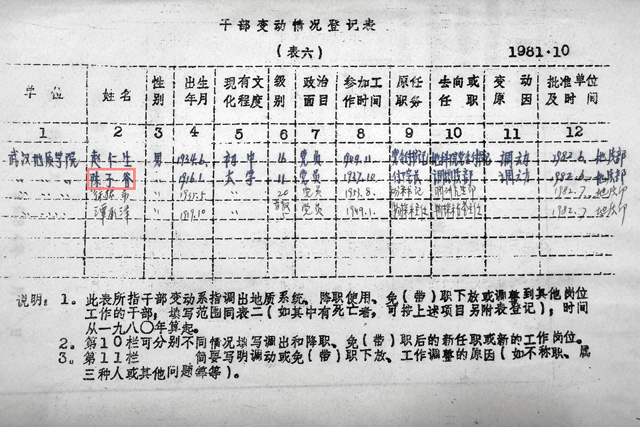 干部变动情况登记表
（表六） 1981·10
学位 姓名 性别 出生年月 现有文化程度 级别 政治面目 参加工作时间 原任职务 去向或任职 变动原因 批准单位及时间
1 2 3 4 5 6 7 8 9 10 11 12
武汉地质学院 赵仁生 男 1924.6. 初中 16 党员 1949.11. 调动 1982.6. 地质部
〃 〃 陈子谷 〃 1916.1. 大学 11 党员 1937.10. 付院长 调地质部 调动 1982.6. 地质部
〃 〃 〃 20 党员 1982.7. 地质部
〃 〃 〃 党员 1949.1. 1982.7. 地质部
说明：1。此表所指干部变动系指调出地质系统、降职使用、免（带）职下放或调整到其他岗位
工作的干部；填写范围同表二（如其中有死亡者，可按上述项目另附表登记）；时间
从一九八〇年算起。
2。第10栏可分别不同情况填写调出和降职、免（带）职后的新任职或新的工作岗位。
3。第11栏 简要写明调动或免（带）职下放、工作调整的原因（如不称职、属
三种人或其他问题等等）。